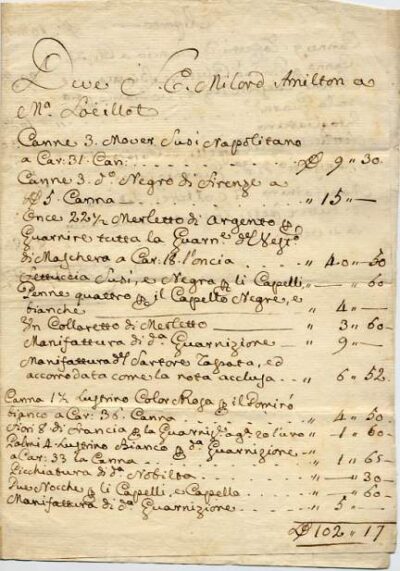 Deve S. E. Milord Amilton a
Mª. Loëillot
Canne 3. Mover Susi Napolitano
a Car: 31. Can: . . . . . . . . 9 " 30
Canne 3. dº Negro di Firenze a
5. Canna — . . . . . . . " 15 " —
Once 22½ Merletto di Argento
Guarnire tutta la Guarne. del
di Maschera a Car: 18. l'oncia . . " 40 " 50
Fettuccia Susi, e Negra li Capelli — " — 60
Penne quattro il Capello Negre, e
bianche — . . . " 4 " —
Un Collaretto di Merletto — " 3 " 60
Manifattura di dª Guarnizione — " 9 " —
Manifattura del Sartore Tassata, ed
accordata come la nota acclusa . . " 6 " 52
Canna 1½ Lustrino Color Rosa il
bianco a Car: 36. Canna . . . . " 4 " 50
Fiori 8 di Francia la Guarni: a gª 20 l'uvo " 1 " 60
Palmi 4 Lustrino Bianco dª Guarnizione "
a Car: 33 la Canna . . . . " 1 " 65
Picchiatura di dª Nobiltà . . . . " — 30
Due Nocche li Capelli, e Capello . . " — 60
Manifattura di dª Guarnizione . . " 5 " —
102 " 17